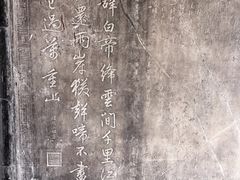 辭白帝綵雲間千里江
還兩岸猿聲啼不盡
已過萬重山